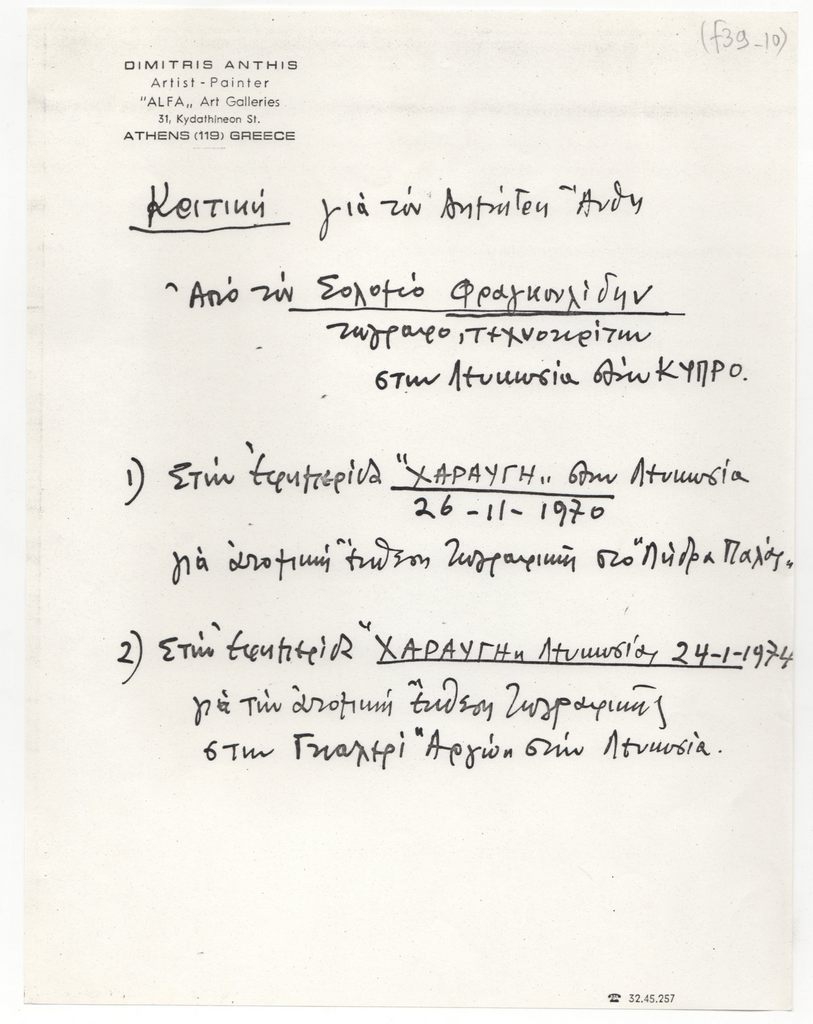 (f39-10)
DIMITRIS ANTHIS
Artist - Painter
"ALFA„ Art Galleries
31, Kydathineon St.
ATHENS (119) GREECE
Κριτική γιὰ τὸν Δημήτρη Ἄνθη
Ἀπὸ τὸν Σολομὸ Φραγκουλίδην
ζωγράφο, τεχνοκρίτη
στὴν Λευκωσία στὴν ΚΥΠΡΟ.
1) Στὴν ἐφημερίδα "ΧΑΡΑΥΓΗ„ στὴν Λευκωσία
26-11-1970
γιὰ ἀτομικὴ ἔκθεση ζωγραφικῆς στὸ "Λήδρα Παλάς„
2) Στὴν ἐφημερίδα "ΧΑΡΑΥΓΗ„ Λευκωσίας 24-1-1974
γιὰ τὴν ἀτομικὴ ἔκθεση ζωγραφικῆς
στὴν Γκαλερὶ "Ἀργώ„ στὴν Λευκωσία.
☎ 32.45.257